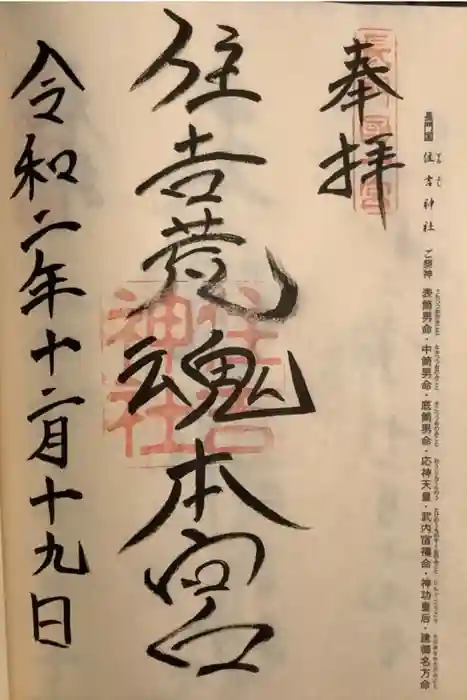 長門国 住吉神社 ご祭神 表筒男命・中筒男命・底筒男命・応神天皇・武内宿禰命・神功皇后・建御名方命
奉拝
長門國一宮
住吉荒魂本宮
住吉神社
令和二年十二月十九日